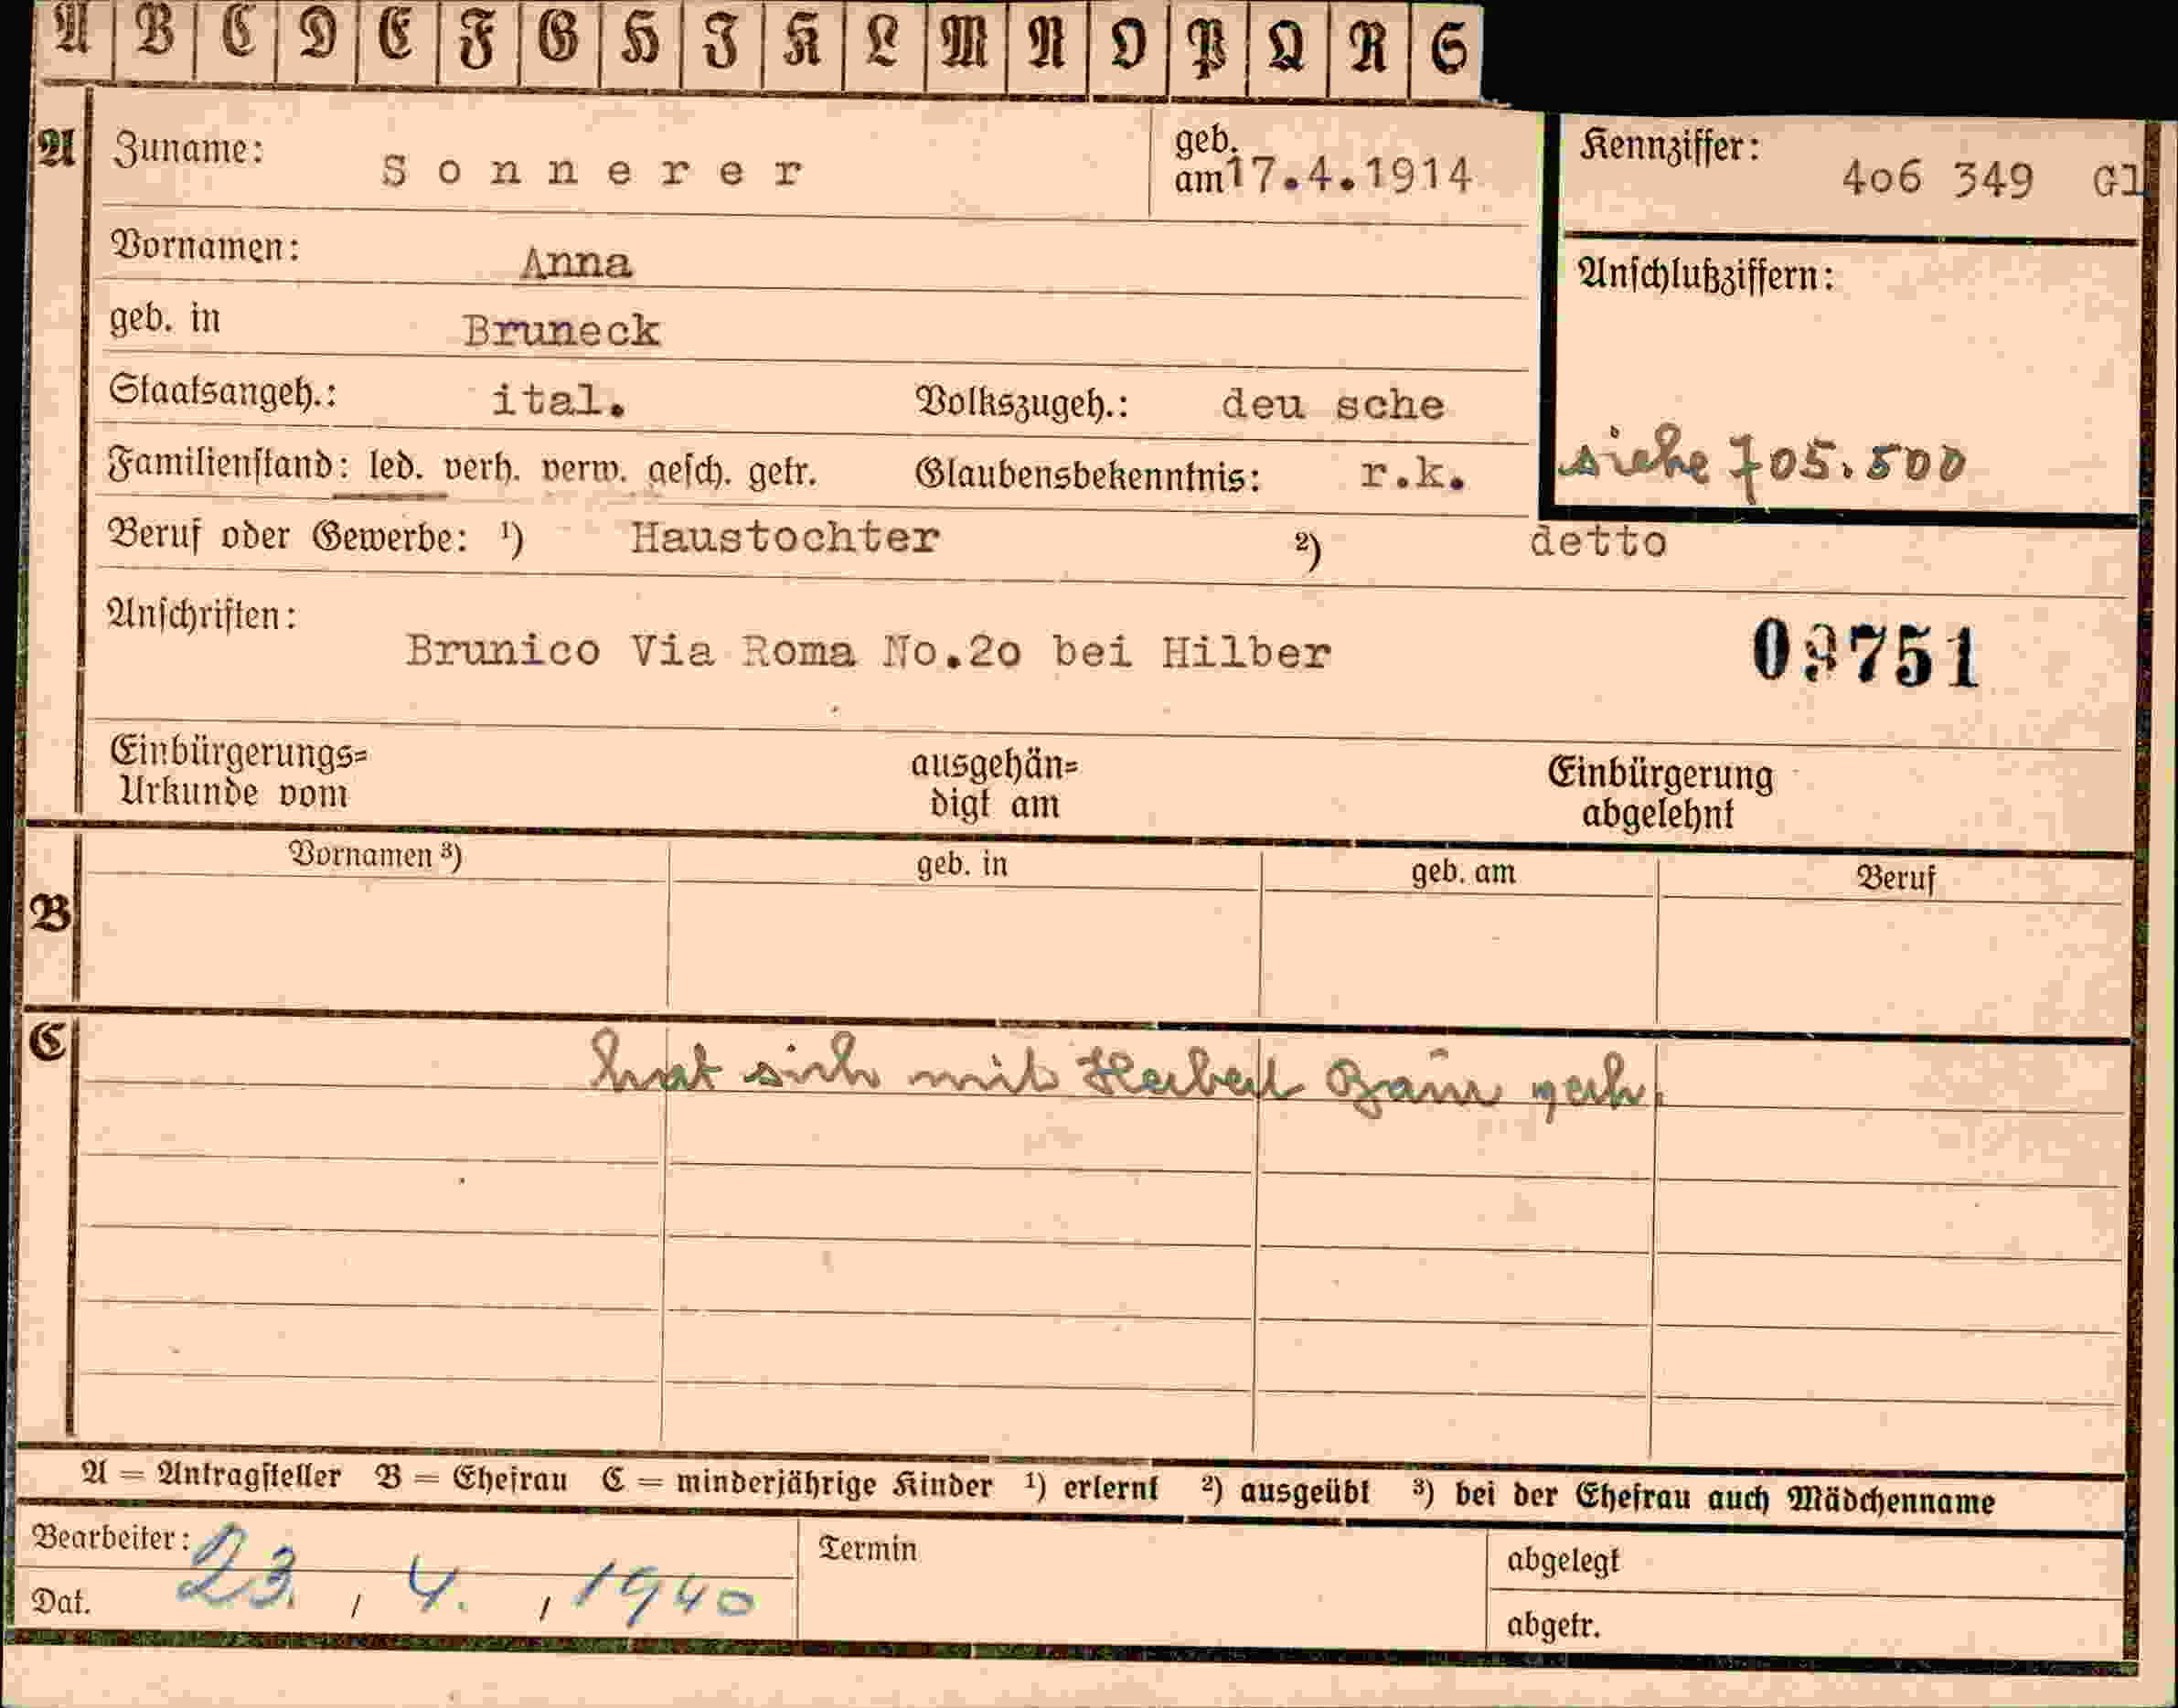 A B C D E F G H I K L M N O P Q R S
A Zuname: Sonnerer geb. am 17.4.1914 Kennziffer: 4o6 349 Gl
Vornamen: Anna
Anschlußziffern:
geb. in Bruneck
Staatsangeh.: ital. Volkszugeh.: deu sche
Familienstand: led. verh. verw. gesch. getr. Glaubensbekenntnis: r.k. siehe 705.500
Beruf oder Gewerbe: ¹) Haustochter ²) detto
Anschriften:
Brunico Via Roma No.2o bei Hilber 751
Einbürgerungs= ausgehän= Einbürgerung
Urkunde vom digt am abgelehnt
Vornamen ³) geb. in geb. am Beruf
B
C
hat sich mit verh.
A = Antragsteller B = Ehefrau C = minderjährige Kinder ¹) erlernt ²) ausgeübt ³) bei der Ehefrau auch Mädchenname
Bearbeiter: Termin abgelegt
Dat. 23. / 4. / 1940 abgetr.